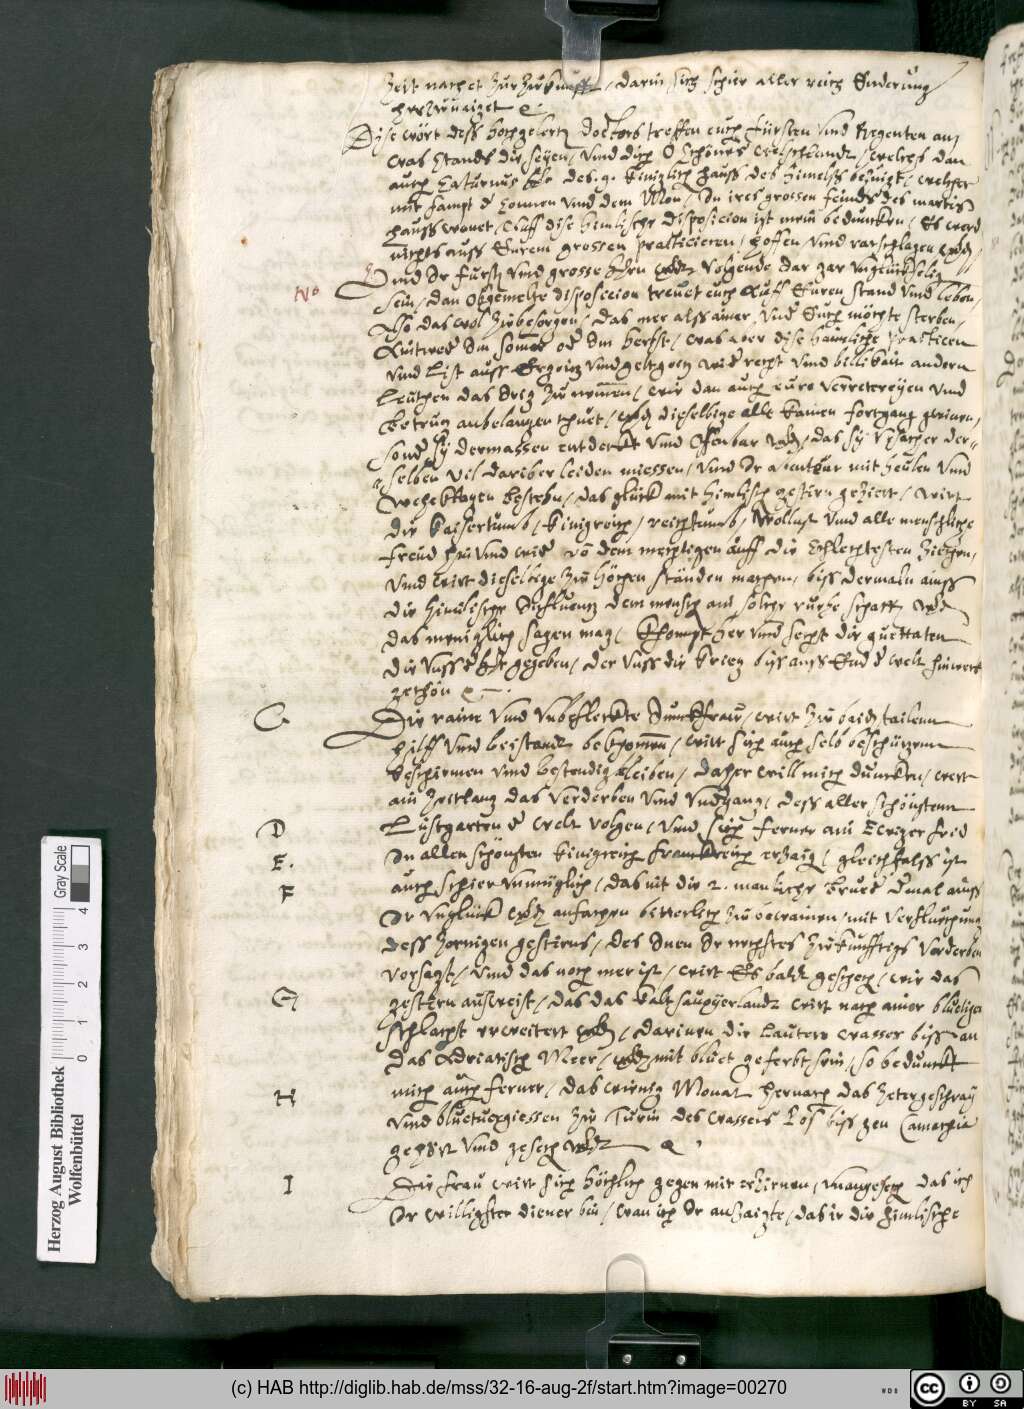 Zeit nachet zur zukunfft, darin sich schier aller reich Enderung
herzunaiget
Dise wört dess hochgelertt doctors treffen euch Fürsten und Regenten an
was Stands dir seyen, und dich O schönes welschlandt, welches dan
auch Saturnus des 9. kiniglich hauss des himels besiizt, welcher
mit sampt der Sonnen und dem Mon, In ires grossen feinds des martis
hauss wonet, Auff dise himlische disposicion ist mein beduncken, Es werd
nichts auss Eurem grossen practicieren, hoffen und varschlagen
Und Ir fürst und grosse hern volgende Jar gar ungluckselig
No
sein, dan obgemelte disposicion treuet euch Auff Euren stand und leben,
Also das wol zu besorgen, das mer alss ainer, under Euch mochte sterben,
Aintweder Im somer oder Im herbst, was aber dise haimliche practicen
und List auss Ergeitz und geltgeitz wider recht und billikait andern
Leuthen das Irig zu nemmen, wie dan auch eure verretereyen und
betrug anbelangen thuet, dieselbige alle kainen fortgang gwinen,
sonder sy dermassen entdeckt und Offenbar, das sy ursacher der=
selben vil dariber leiden miessen, und Ir a mit heulen und
Wehekklagen besteen, das glück mit himlisch gestirn geziert, wirt
die kaisertumb, kinigreich, reichtumb, Wollust und alle menschliche
freud hin und wider von dem mechtigen auff die Schlechtesten Ziehen,
und wirt dieselbige zu höhen ständen machen, biss dermaln ainss
die himlische Influentz dem mensch ain solche ruehe schafft
das meniglich sagen mag, Khompt her und secht die guettaten
die unss gegeben, der unss die krieg biss anss End der welt hinweck
gethon
C Die raine und unbefleckte Junckfraw, wirt zu baid tailenn
hilff und beistandt bekhommen, wirt sich auch selb beschützenn
beschirmen und bestendig bleiben, daher will mich duncken, wert
ain zeitlang das verderben und undgang, dess aller schönstenn
D Lustgarten der welt volgen, und sich ferner ain Ewiger frid
E. In allen schönsten kinigreich franckreich erhaig, gleichfalss ist
F auch schier unmüglich, das nit die 2. manliche Brüeder ainss
Ir unglück anfachen bitterlich zu bewainen, mit verfluechung
dess zornigen gestirns, des Inen Ir nechstes zukünfftigs verderben
vorsagt, und das noch mer ist, wirt Es baldt geschech, wie das
G gestirn ausweist, das das kalt saupyerlandt wirt nach ainer bluetigen
schlacht erweitert, darinen die Lautere wasser biss an
das Adriatisch Meer, mit bluet geferbt sein, so bedunckt
H mich auch ferner, das wenig Monat hernach das Zetergeschray
und bluetvergiessen zu Turin des wassers Pos biss gen
gehört und gesech
I Die frau wirt sich höchlich gegen mir erzirnen, unangesech das ich
Ir willigster diener bin, wan ich Ir anzaigte, das ir die himlische
Herzog August Bibliothek
Wolfenbüttel
0 1 2 3 4
Gray Scale
(c) HAB http://diglib.hab.de/mss/32-16-aug-2f/start.htm?image=00270
WDB
cc BY SA